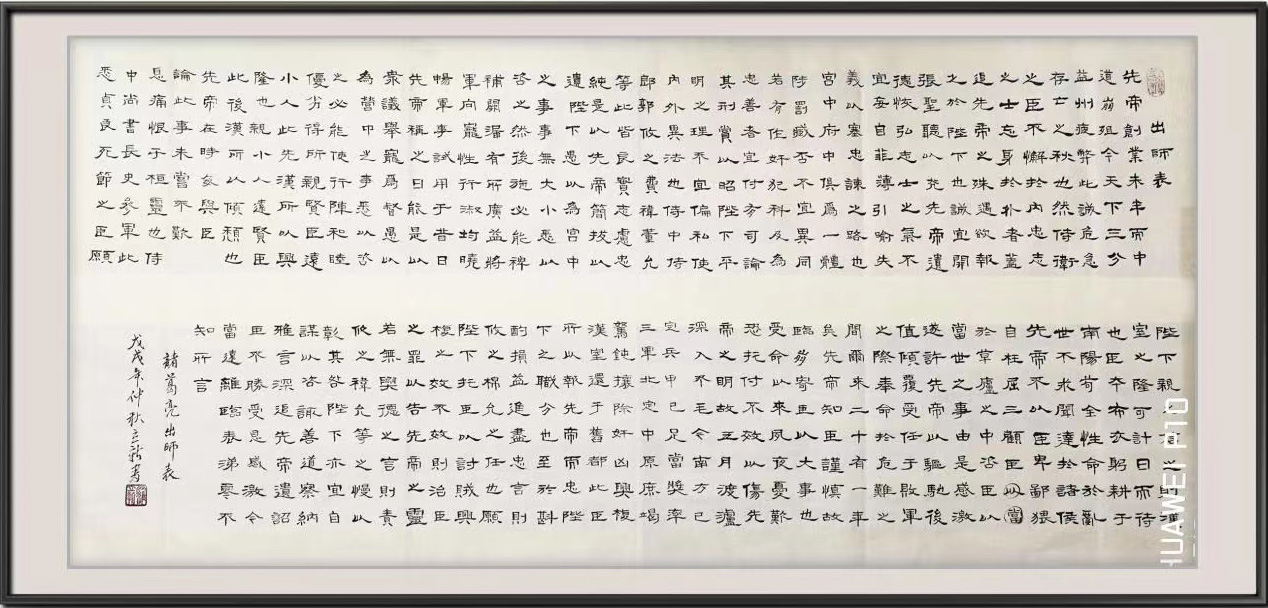 出師表
先帝創業未半而中
道崩殂今天下三分
益州疲弊此誠危急
存亡之秋也然侍衛
之臣不懈於內忠志
之士忘身於外者蓋
追先帝之殊遇欲報
之於陛下也誠宜開
張聖聽以光先帝遺
德恢弘志士之氣不
宜妄自菲薄引喻失
義以塞忠諫之路也
宮中府中俱爲一體
陟罰臧否不宜異同
若有作奸犯科及為
忠善者宜付有司論
其刑賞以昭陛下平
明之理不宜偏私使
內外異法也侍中侍
郎郭攸之費禕董允
等此皆良實志慮忠
純是以先帝簡拔以
遺陛下愚以為宮中
之事事無大小悉以
咨之然後施必能裨
補闕漏有所廣益將
軍向寵性行淑均曉
暢軍事試用于昔日
先帝稱之曰能是以
衆議舉寵爲督愚以
為營中之事悉以咨
之必能使行陳和睦
優劣得所親賢臣遠
小人此先漢所以興
隆也親小人遠賢臣
此後漢所以傾頹也
先帝在時每與臣
論此事未嘗不歎
息痛恨于桓靈也侍
中尚書長史參軍此
悉貞良死節之臣願
陛下親之信之則漢
室之隆可計日而待
也臣本布衣躬耕于
南陽苟全性命於亂
世不求聞達於諸侯
先帝不以臣卑鄙猥
自枉屈三顧臣以當
於草廬之中咨臣以
當世之事由是感激
遂許先帝以驅馳後
值傾覆受任于敗軍
之際奉命於危難之
間爾來二十有一年
矣先帝知臣謹慎故
臨崩寄臣以大事也
受命以來夙夜憂歎
恐托付不效以傷先
帝之明故五月渡瀘
深入不毛今南方已
定兵甲已足當獎率
三軍北定中原庶竭
駑鈍攘除奸凶興復
漢室還于舊都此臣
所以報先帝而忠陛
下之職分也至於斟
酌損益進盡忠言則
攸之禕允之任也願
陛下托臣以討賊興
復之效不效則治臣
之罪以告先帝之靈
若無興德之言則責
攸之禕允等之慢以
彰其咎陛下亦宜自
謀以咨諏善道察納
雅言深追先帝遺詔
臣不勝受恩感激今
當遠離臨表涕零不
知所言
諸葛亮出師表
戊戌年仲秋立新書
HUAWEI P10